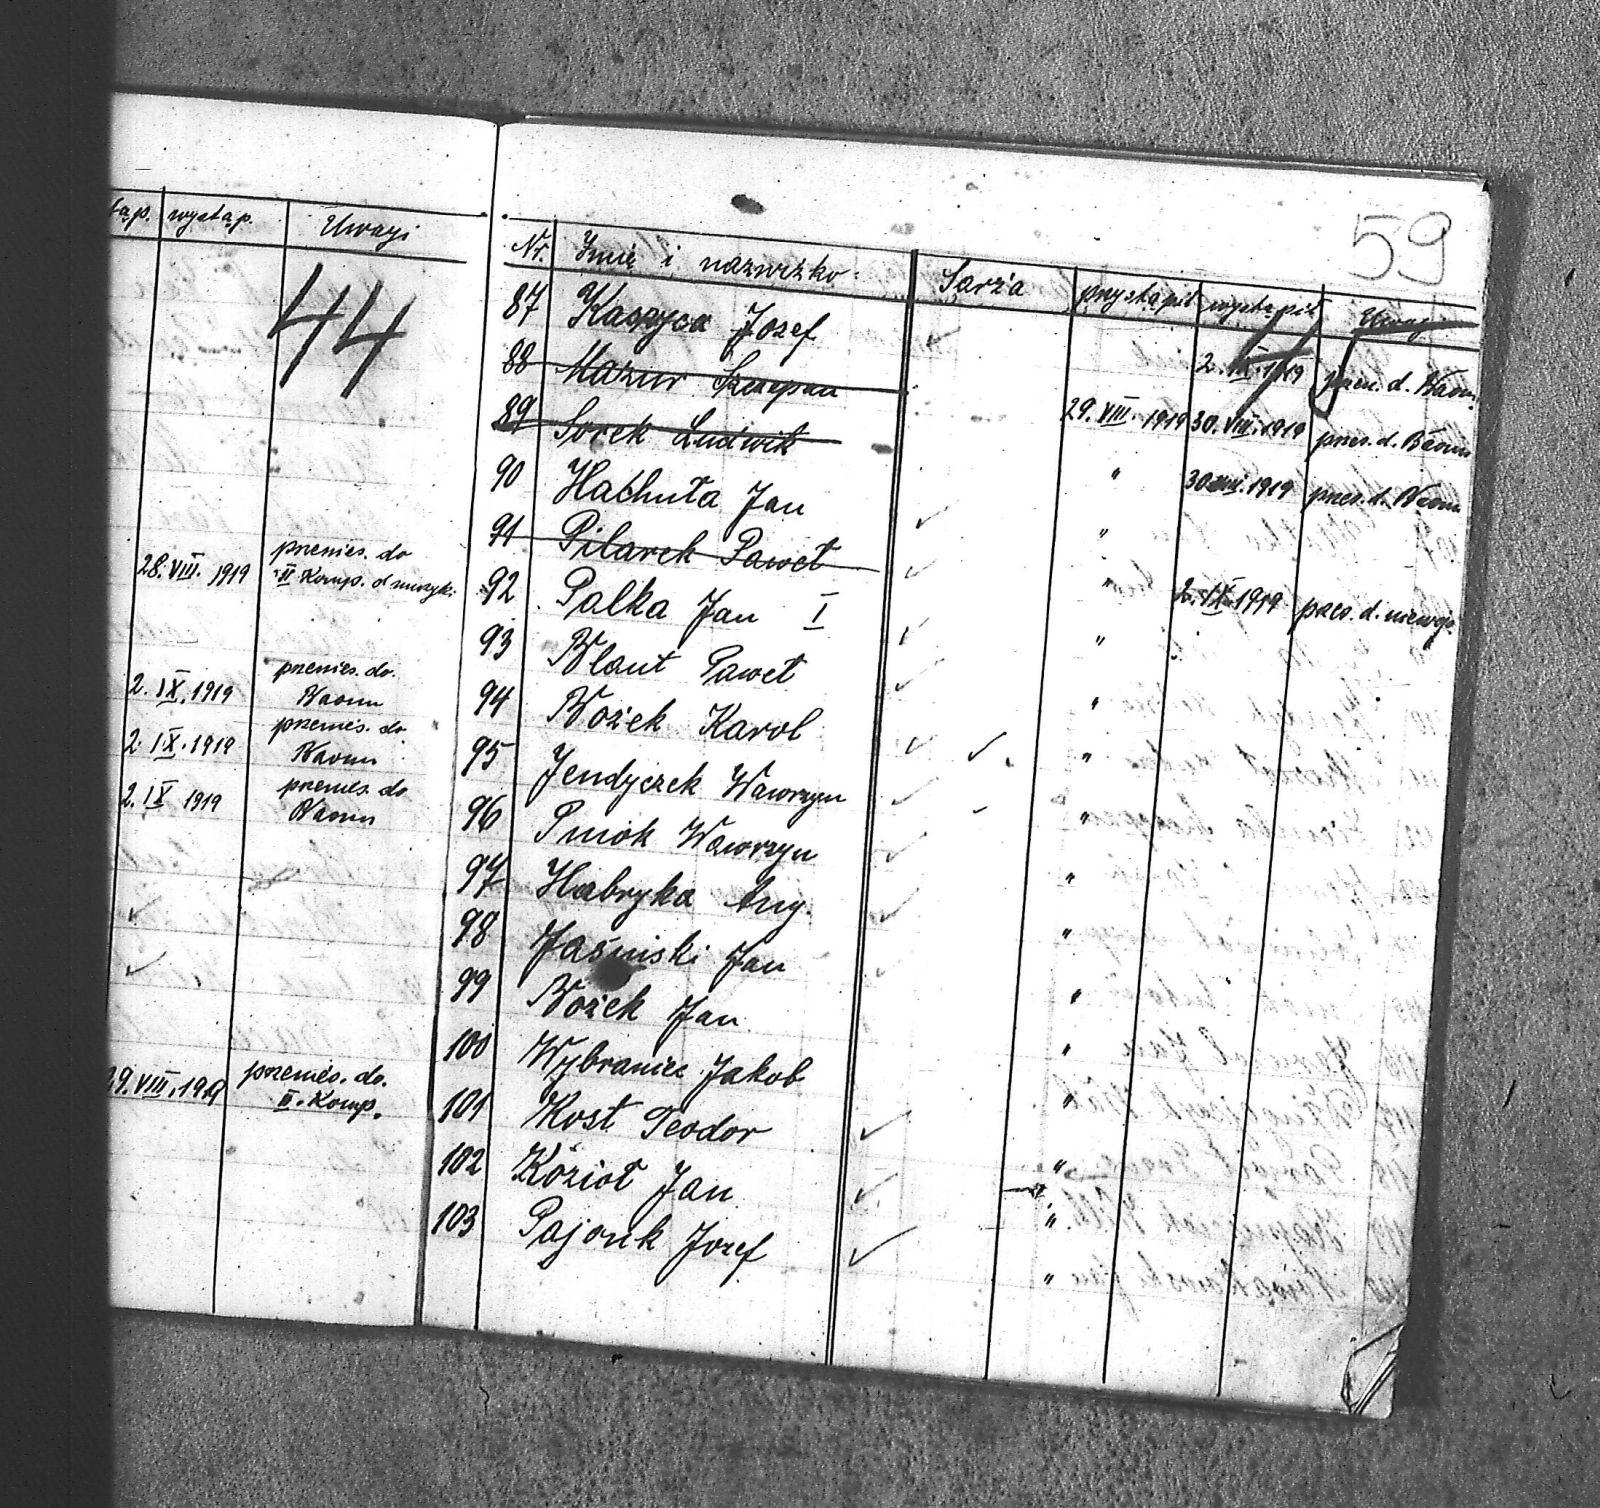 tąp. wystąp. Uwagi
44
28.VIII. 1919 przenies. do
II Komp. d muzyki
2. IX. 1919 przenies. do.
Baonu
2. IX. 1919 przenies. do
Baonu
2. IX 1919 przenies. do
Baonu
29.VIII.1919 przenies. do.
II. Komp.
59
Nr. Imię i nazwizko. Sarża przystąpił wystąpił Uwagi
87 Kaszyca Jozef
88 Mazur Szczepan 2. IX. 1919 przen. d. Baonu
89 Sorek Ludwik 29. VIII. 1919 30. VIII. 1919 przes. d. Baonu
90 Hachuła Jan " 30 VIII. 1919 przes. d. Baonu
91 Pilarek Paweł "
92 Palka Jan I " 2. IX. 1919 przes. d.
93 Blaut Paweł "
94 Bożek Karol "
95 Jendyczek Wawrzyn "
96 Pniok Wawrzyn "
97 Habryka Aug. "
98 Jaśniski Jan "
99 Bożek Jan "
100 Wybraniec Jakob "
101 Kost Teodor "
102 Kozioł Jan "
103 Pajonk Jozef "